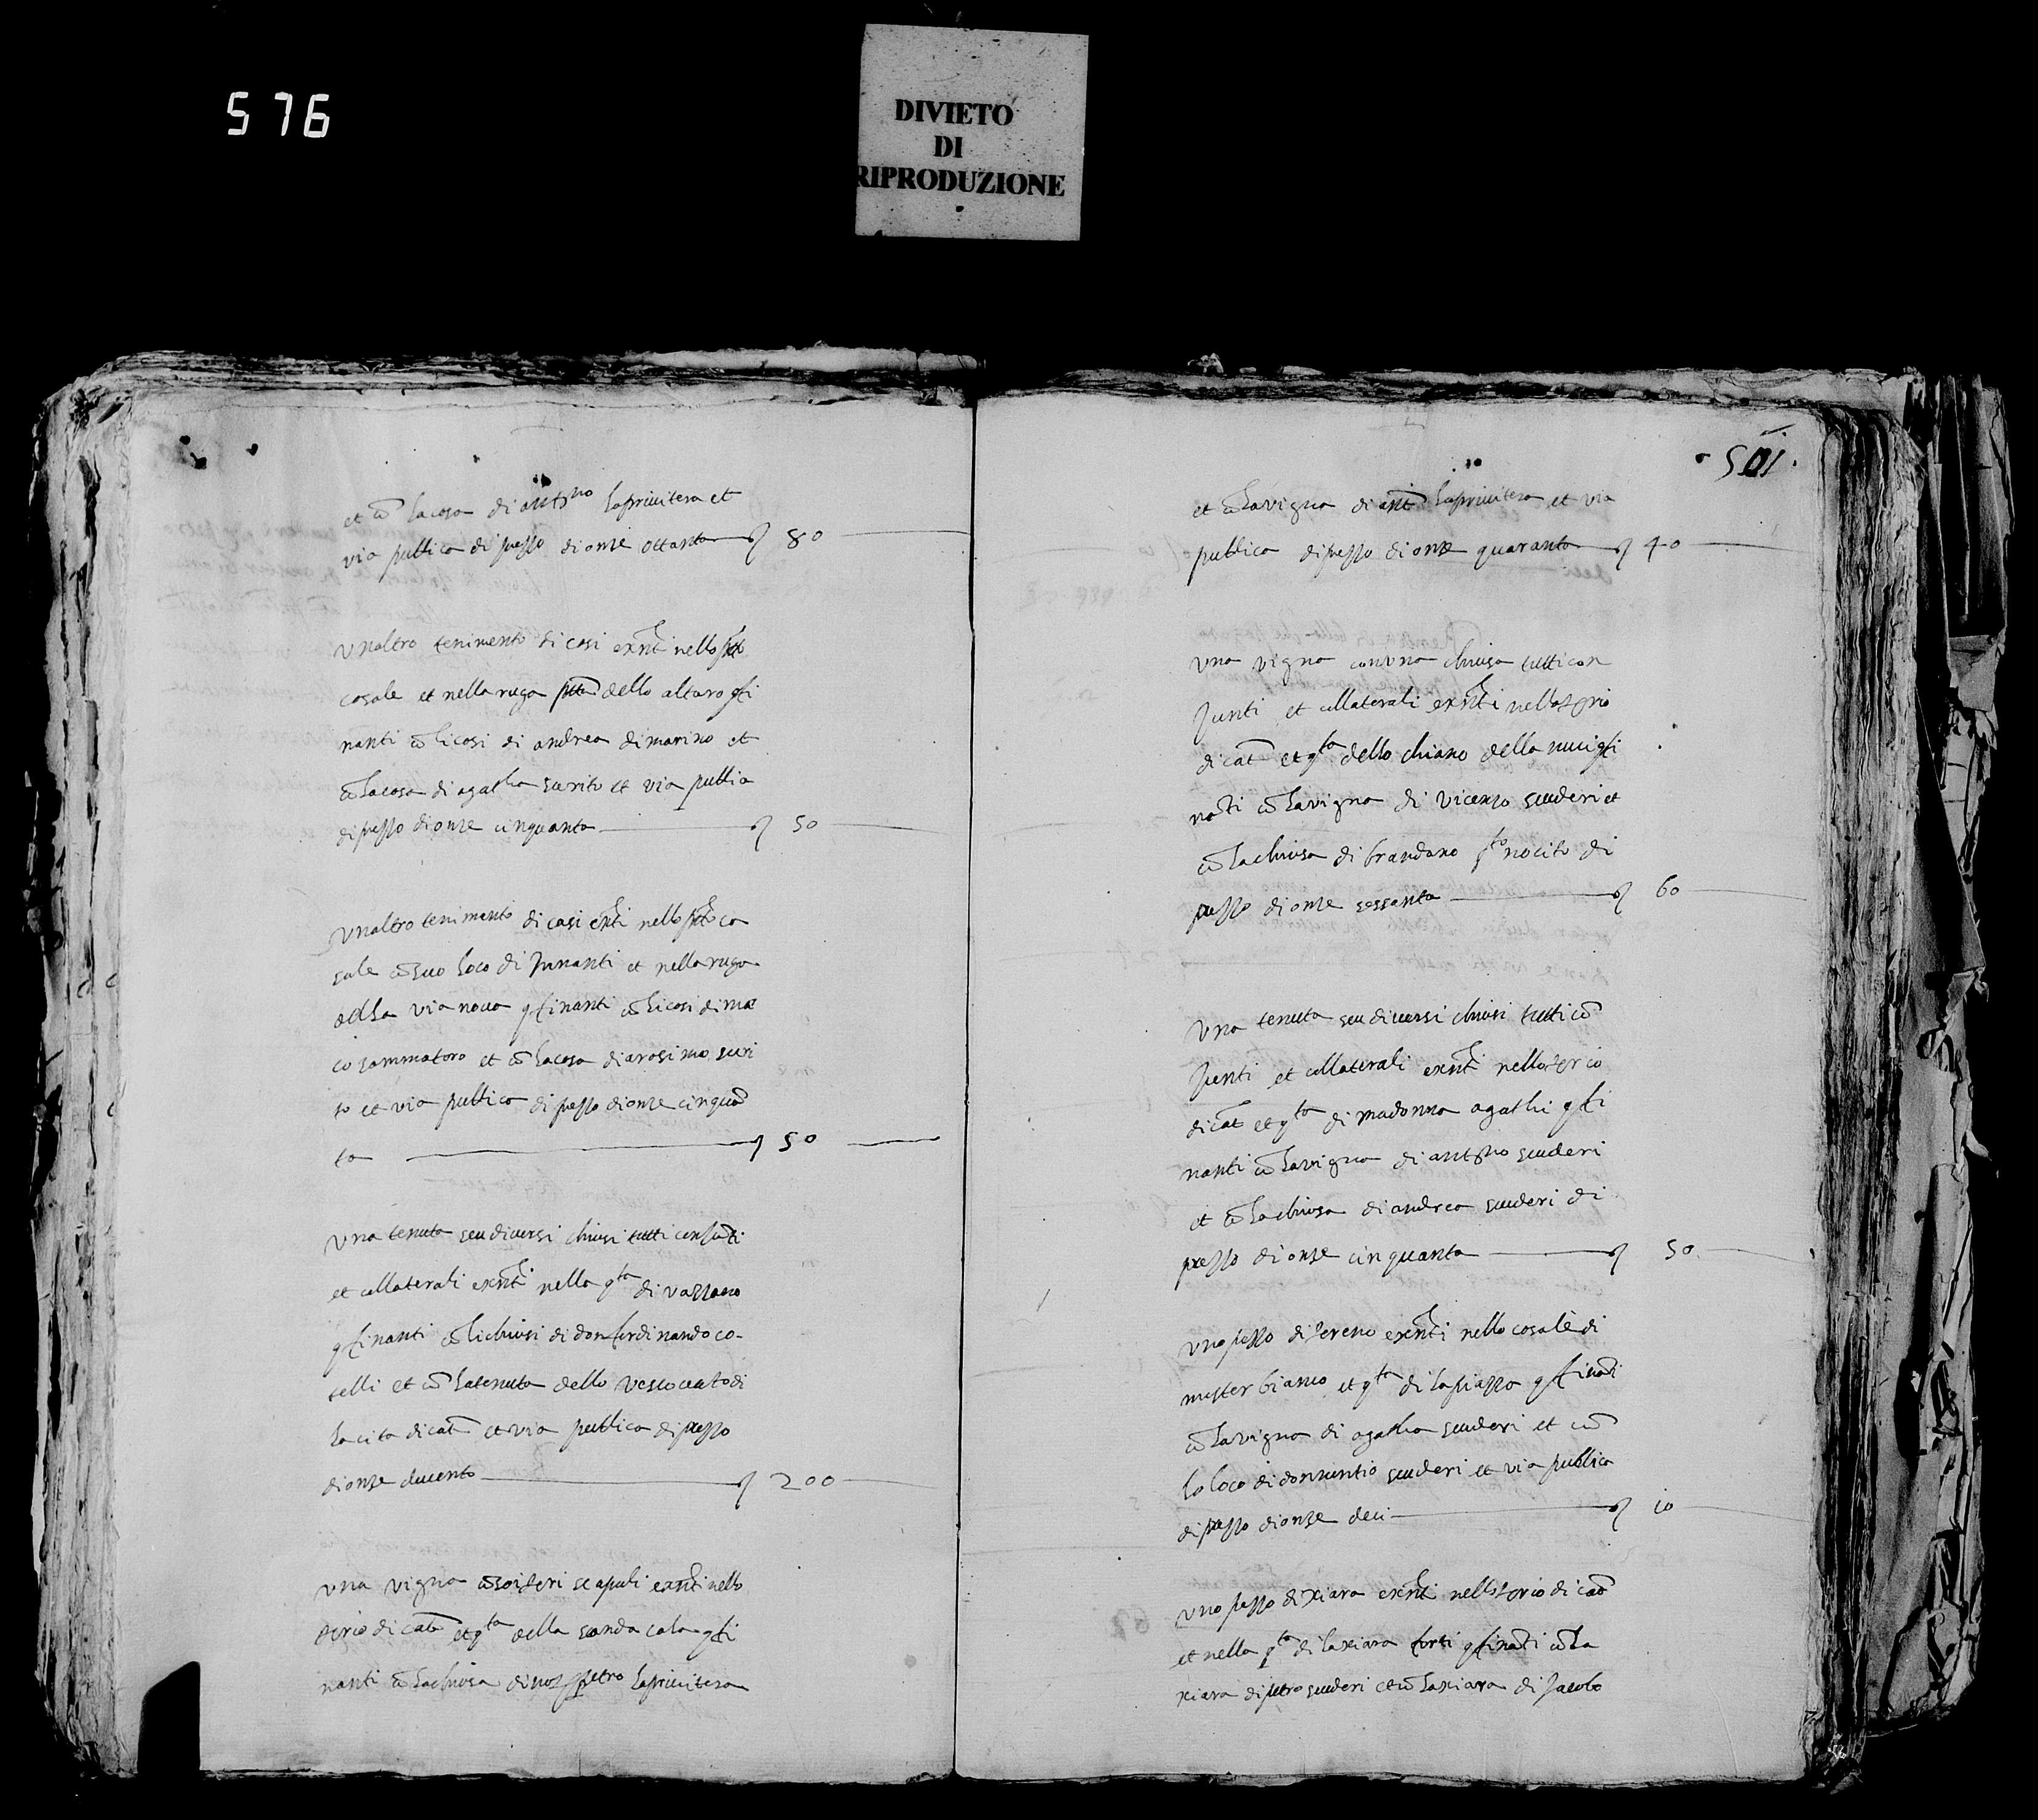 576
DIVIETO
DI
RIPRODUZIONE
et cō la casa di antno laprivitera et
via publica di prezzo di onze ottanta 80
Unaltro tenimento di casi exnti nello ptto
casale et nella ruga ptta dello altaro cōfi
nanti cō li casi di andrea di marino et
cō la casa di agatha scurito et via publica
di prezzo di onze cinquanta 50
Unaltro tenimento di casi exnti nello ptto ca
sale cō suo loco di Innanti et nella ruga
della via nova cōfinanti cō li casi di ma
co sammatoro et cō la casa di arasimo scuri
to et via publica di prezzo di onze cinquā
ta 50
Una tenuta seu diversi chiusi tutti conjuti
et collaterali exnti nella cta di vazzano
cōfinanti cō li chiusi di don ferdinando co-
telli et cō la tenuta dello vescovato di
la cita di cata et via publica di prezzo
di onze ducento 200
Una vigna cō soi teri scapuli exnti nello
terrio di cata et cta della scanda cala cōfi
nanti cō la chiusa di petro laprivitera
501
et cō la vigna di ant laprivitera et via
publica di prezzo di onze quaranta 40
Una vigna con una chiusa tutti con
Junti et collaterali exnti nello terrio
di cat et cta dello chiano della nuci cōfi
nāti cō la vigna di vicenzo scuderi et
cō la chiusa di brandano nocito di
prezzo di onze sessanta 60
Una tenuta seu diversi chiusi tutti cō
Junti et collaterali exnti nello terrio
di cat et cta di madonna agathi cōfi
nanti cō la vigna di antno scuderi
et cō la chiusa di andrea scuderi di
prezzo di onze cinquanta 50
Uno pezzo di tereno exnti nello casale di
mister bianco et cta di la piazza cōfināti
cō la vigna di agatha scuderi et cō
lo loco di don nuntio scuderi et via publica
di prezzo di onze deci 10
Uno pezzo di xiara exnti nello terrio di cat
et nella cta di la xiara forti cōfināti cō la
xiara di petro scuderi et cō la xiara di Jacobo